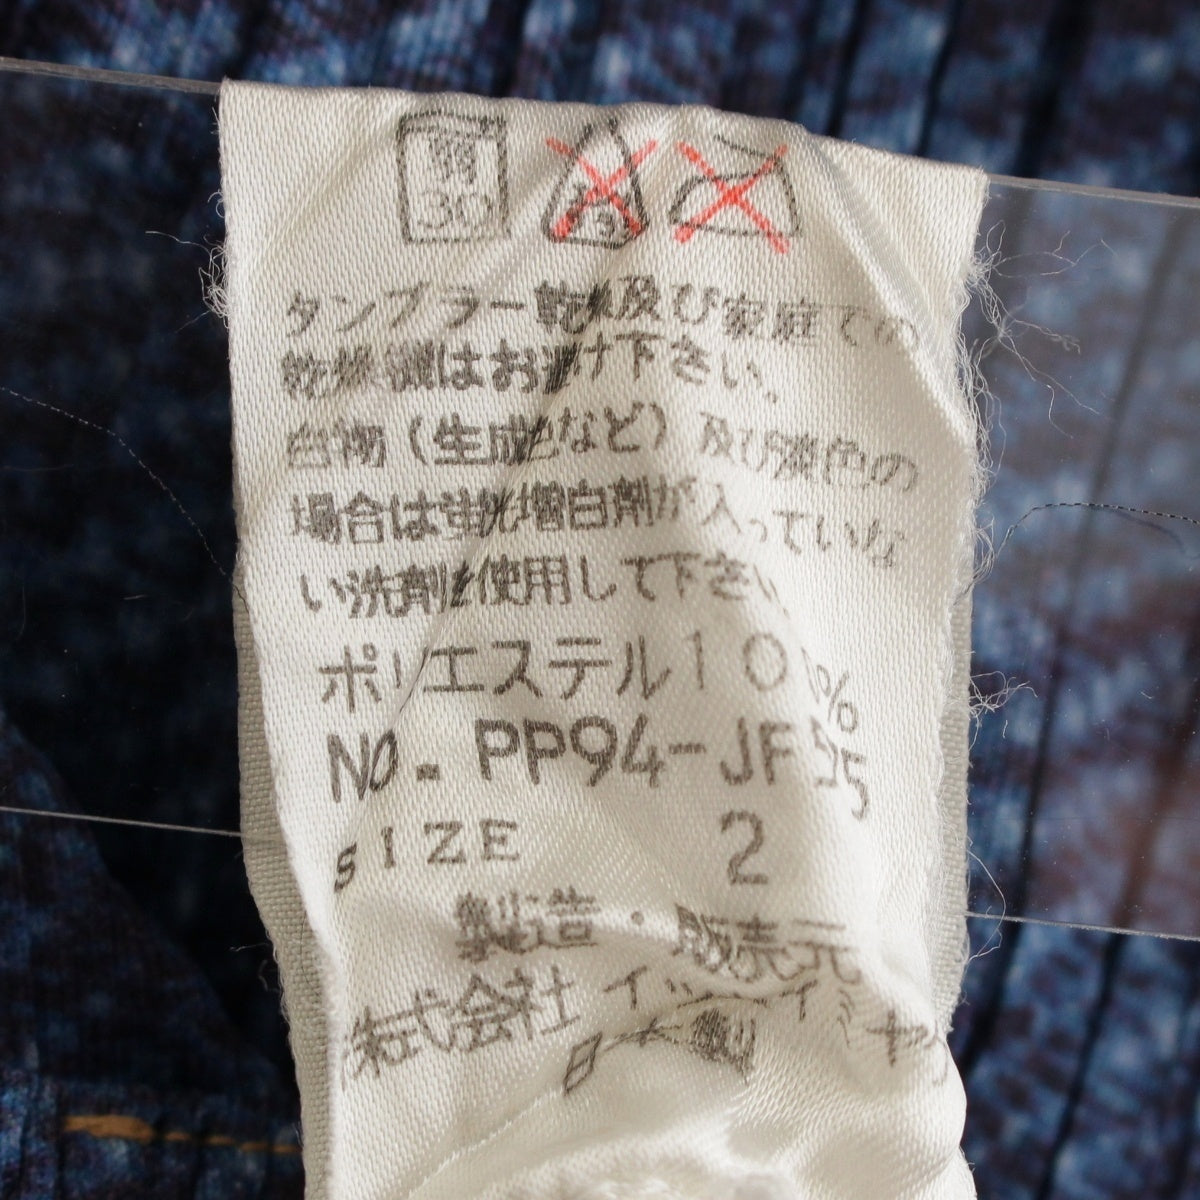 弱
30
タンブラー乾燥及び家庭での
乾燥機はお避け下さい。
白物（生成色など）及び淡色の
場合は蛍光増白剤が入っていな
い洗剤を使用して下さい
ポリエステル100%
NO. PP94-JF
SIZE 2
製造・販売元
株式会社 イッセイミヤケ
日本製